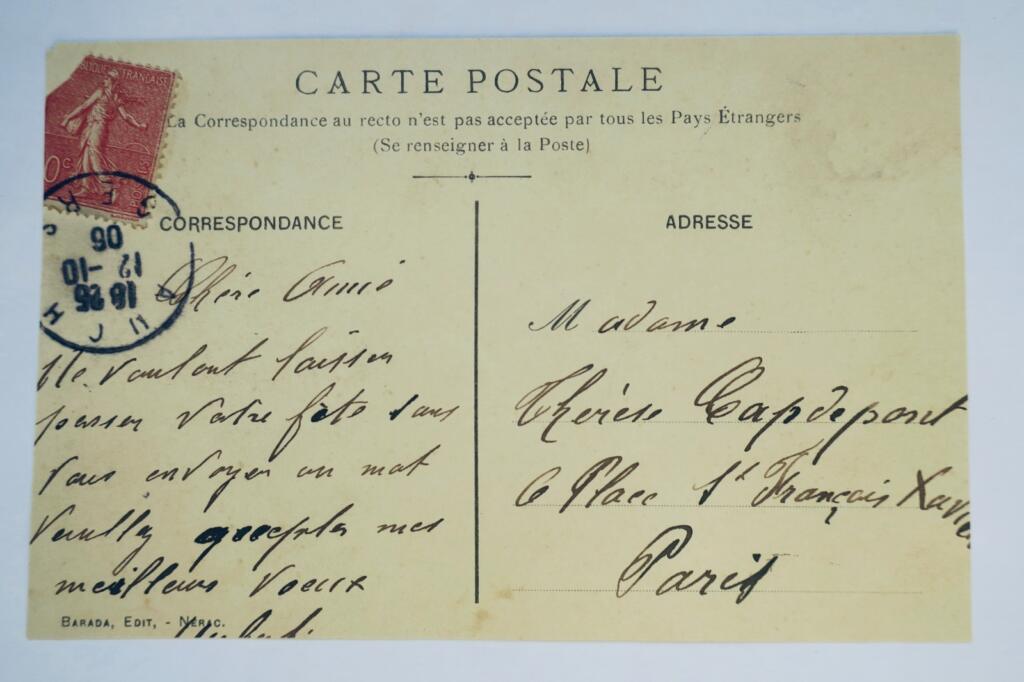 RÉPUBLIQUE FRANÇAISE
POSTES
0c
CARTE POSTALE
La Correspondance au recto n'est pas acceptée par tous les Pays Étrangers
(Se renseigner à la Poste)
CORRESPONDANCE
AUCH
GERS
16 25
12 -10
06
Chère Amie
Ne voulant laisser
passer votre fête sans
vous envoyer un mot
Veuillez accepter mes
meilleurs voeux
BARADA, EDIT, - NÉRAC.
ADRESSE
Madame
Thérèse Capdepont
6 Place St François Xavier
Paris